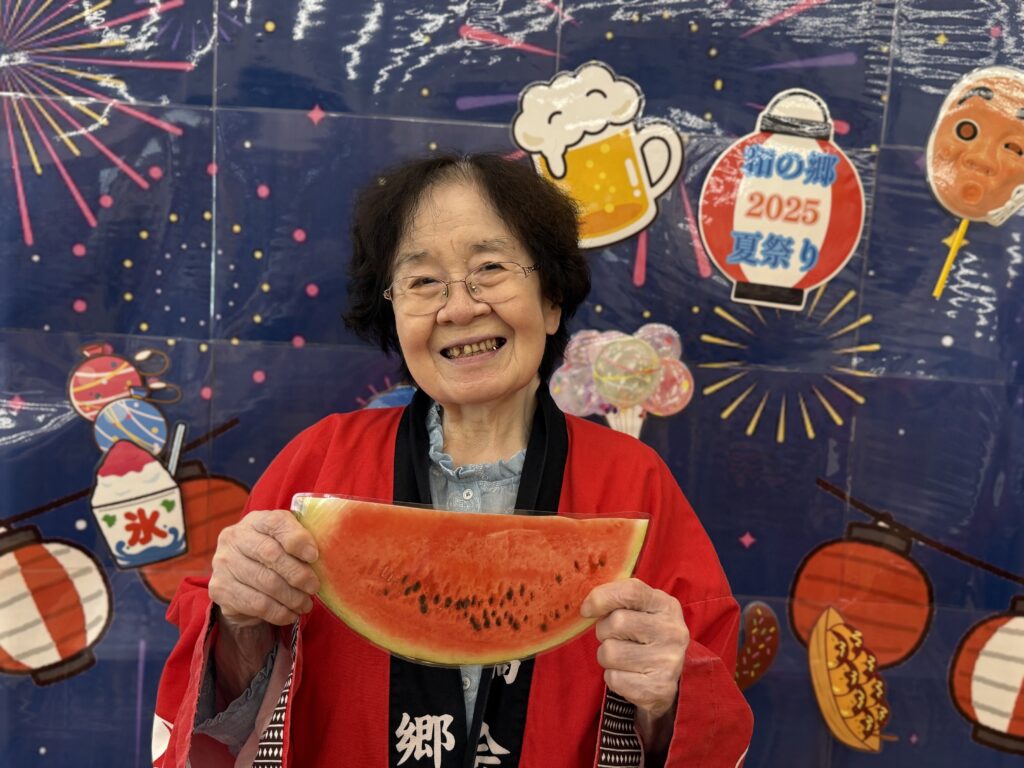 箱の郷
2025
夏祭り
氷
郷